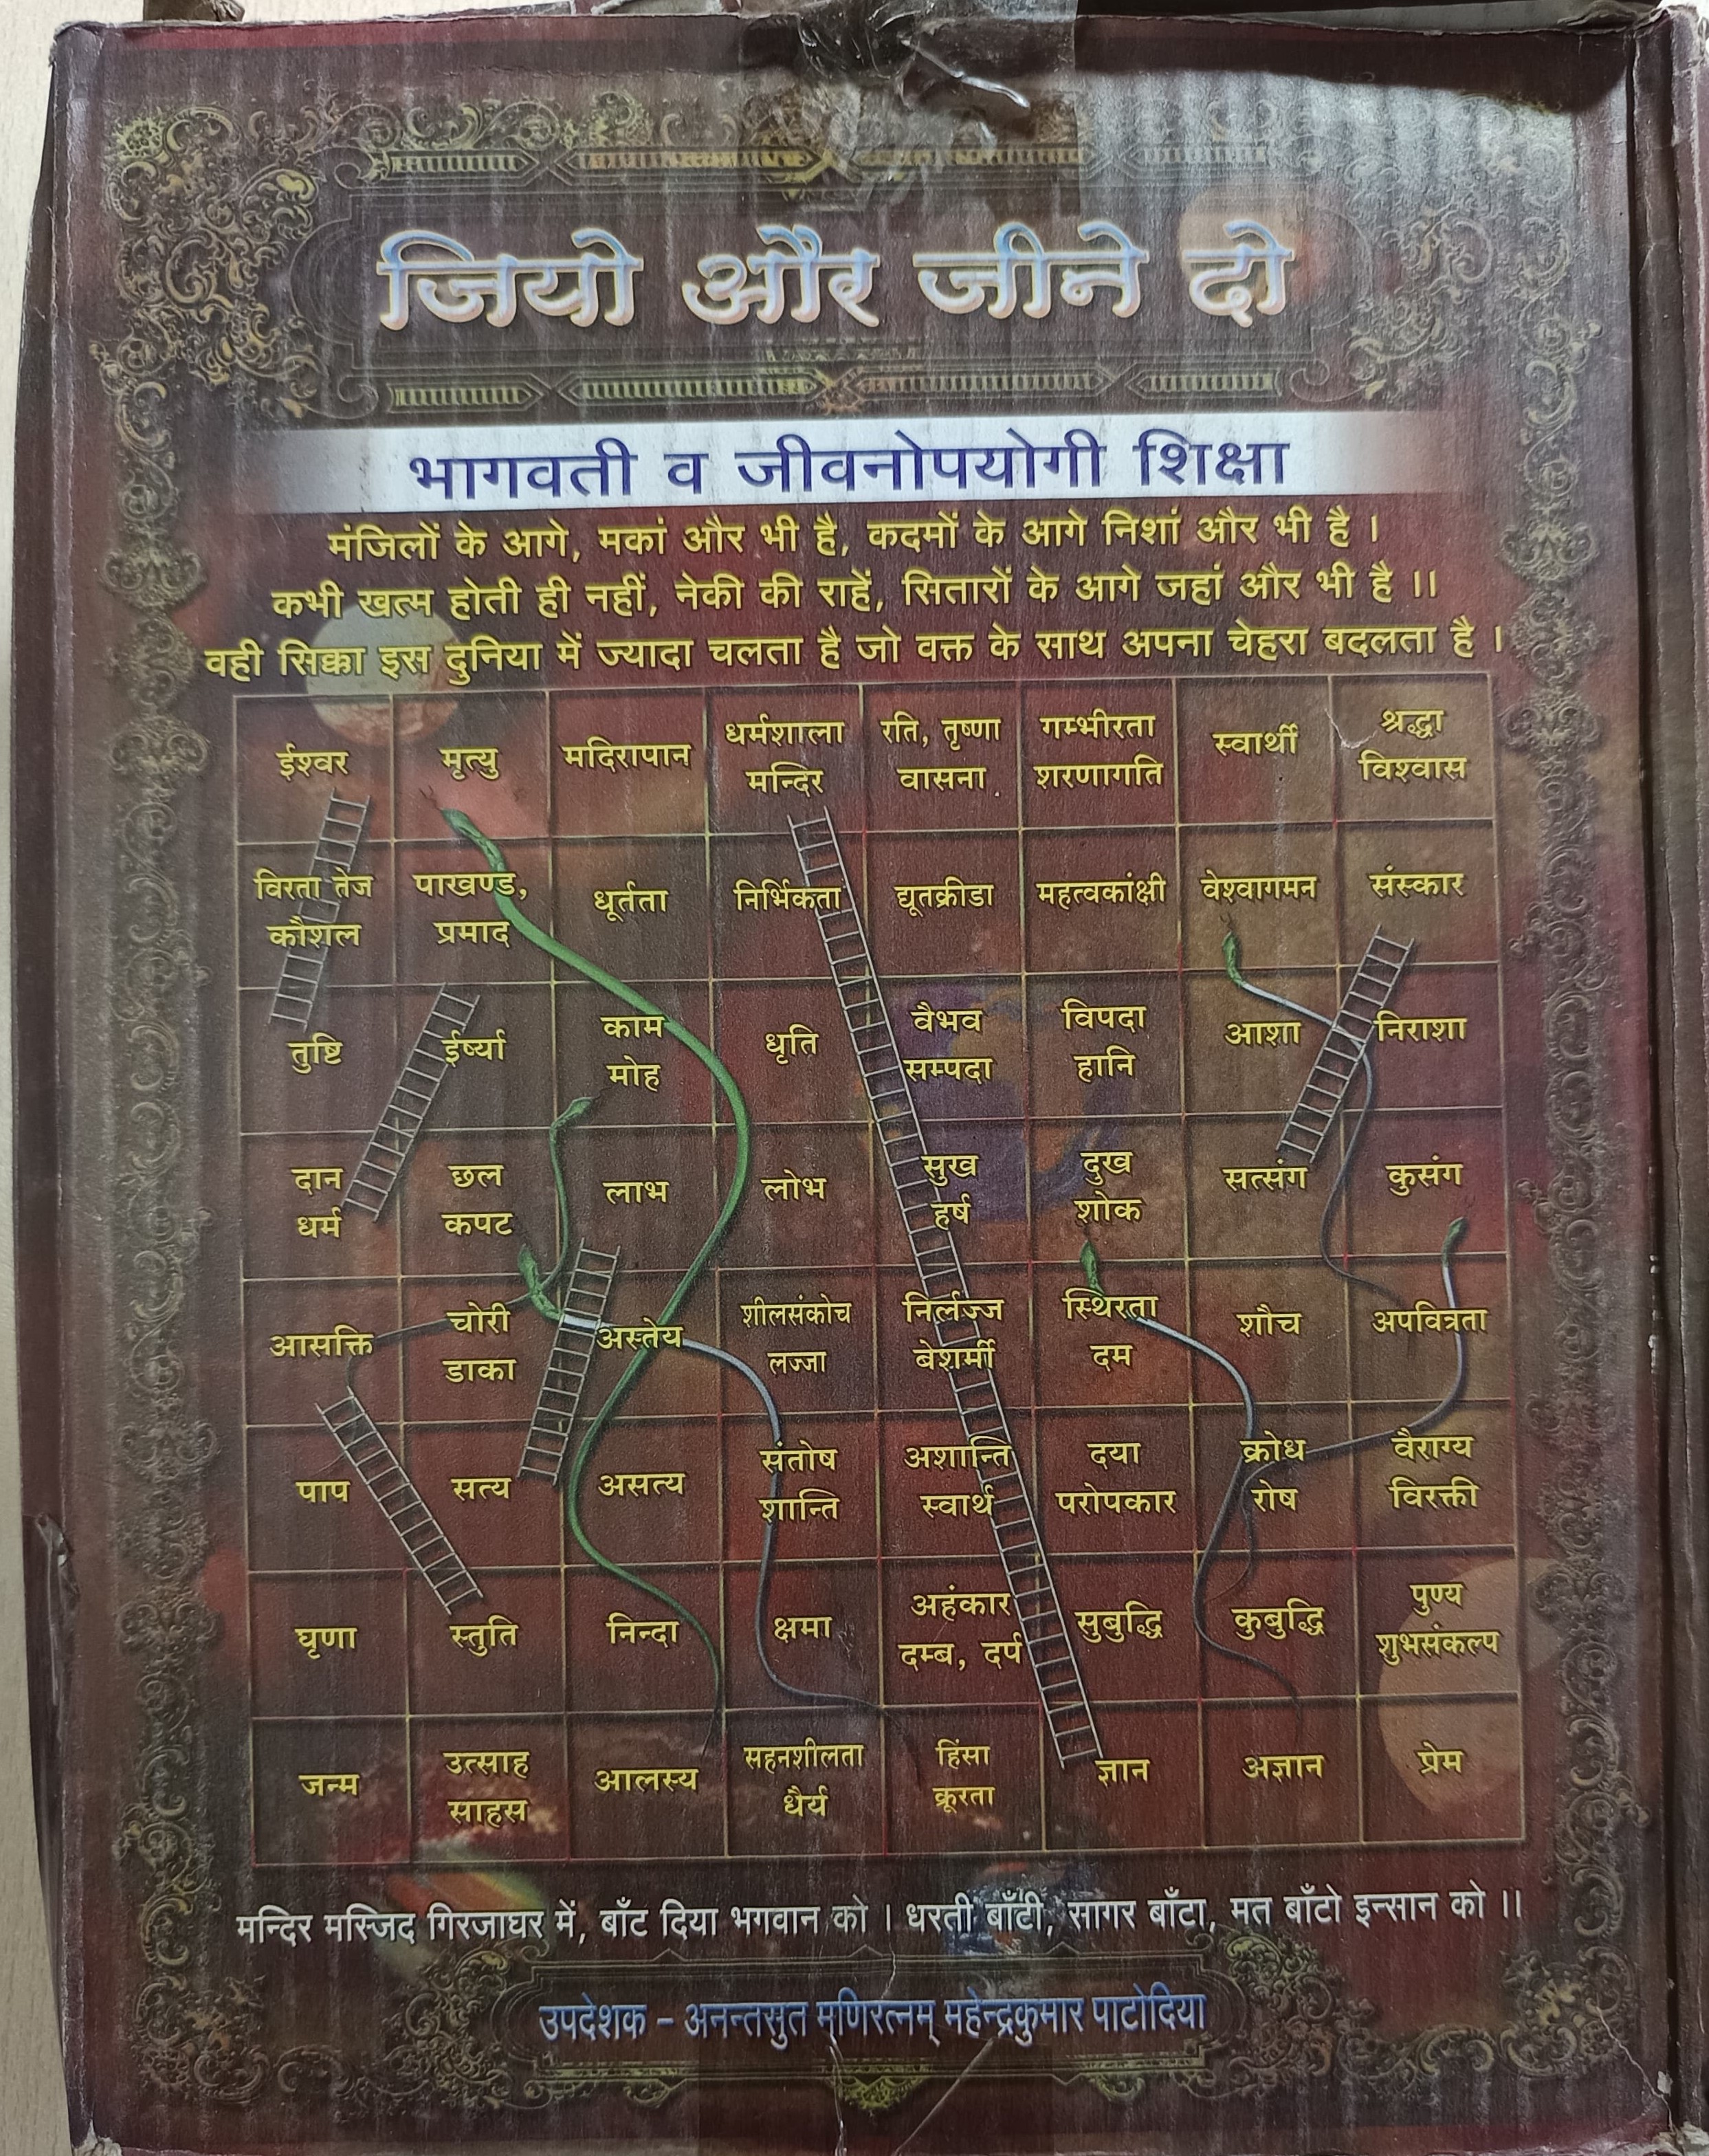 जियो और जीने दो
भागवती व जीवनोपयोगी शिक्षा
मंजिलों के आगे, मकां और भी है, कदमों के आगे निशां और भी है ।
कभी खत्म होती ही नहीं, नेकी की राहें, सितारों के आगे जहां और भी है ।।
वही सिक्का इस दुनिया में ज्यादा चलता है जो वक्त के साथ अपना चेहरा बदलता है ।
ईश्वर
मृत्यु
मदिरापान
धर्मशाला
मन्दिर
रति, तृष्णा
वासना
गम्भीरता
शरणागति
स्वार्थी
श्रद्धा
विश्वास
विरता तेज
कौशल
पाखण्ड,
प्रमाद
धूर्तता
निर्भिकता
द्यूतक्रीडा
महत्वकांक्षी
वेश्वागमन
संस्कार
तुष्टि
ईर्ष्या
काम
मोह
धृति
वैभव
सम्पदा
विपदा
हानि
आशा
निराशा
दान
धर्म
छल
कपट
लाभ
लोभ
सुख
हर्ष
दुख
शोक
सत्संग
कुसंग
आसक्ति
चोरी
डाका
अस्तेय
शीलसंकोच
लज्जा
निर्लज्ज
बेशर्मी
स्थिरता
दम
शौच
अपवित्रता
पाप
सत्य
असत्य
संतोष
शान्ति
अशान्ति
स्वार्थ
दया
परोपकार
क्रोध
रोष
वैराग्य
विरक्ती
घृणा
स्तुति
निन्दा
क्षमा
अहंकार
दम्ब, दर्प
सुबुद्धि
कुबुद्धि
पुण्य
शुभसंकल्प
जन्म
उत्साह
साहस
आलस्य
सहनशीलता
धैर्य
हिंसा
क्रूरता
ज्ञान
अज्ञान
प्रेम
मन्दिर मस्जिद गिरजाघर में, बाँट दिया भगवान को । धरती बाँटी, सागर बाँटा, मत बाँटो इन्सान को ।।
उपदेशक – अनन्तसुत मणिरत्नम् महेन्द्रकुमार पाटोदिया